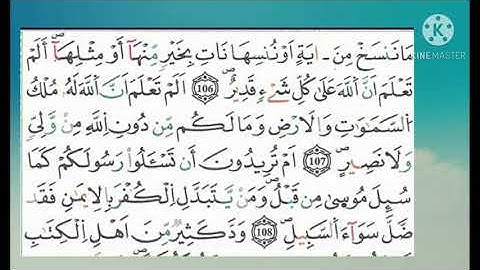 مَا نَنسَخْ مِنَ ايَةٍ اَوْ نُنسِهَا نَاتِ بِخَيْرٍ مِّنْهَآ أَوْ مِثْلِهَآ أَلَمْ
تَعْلَمَ اَنَّ اَللَّهَ عَلَىٰ كُلِّ شَےْءٍ قَدِيرٌ 106 اَلَمْ تَعْلَمَ اَنَّ اَللَّهَ لَهُۥ مُلْكُ
اُلسَّمَٰوَٰتِ وَالَارْضِ وَمَا لَكُم مِّن دُونِ اِللَّهِ مِنْ وَّلِيٍّ
وَلَا نَصِيرٍ 107 اَمْ تُرِيدُونَ أَن تَسْـَٔلُوا۟ رَسُولَكُمْ كَمَا
سُئِلَ مُوسَىٰ مِن قَبْلُ وَمَنْ يَّتَبَدَّلِ اِلْكُفْرَ بِالِايمَٰنِ فَقَد
ضَّلَّ سَوَآءَ اَلسَّبِيلِ 108 وَدَّ كَثِيرٌ مِّنَ اَهْلِ اِلْكِتَٰبِ
K
KINEMASTER